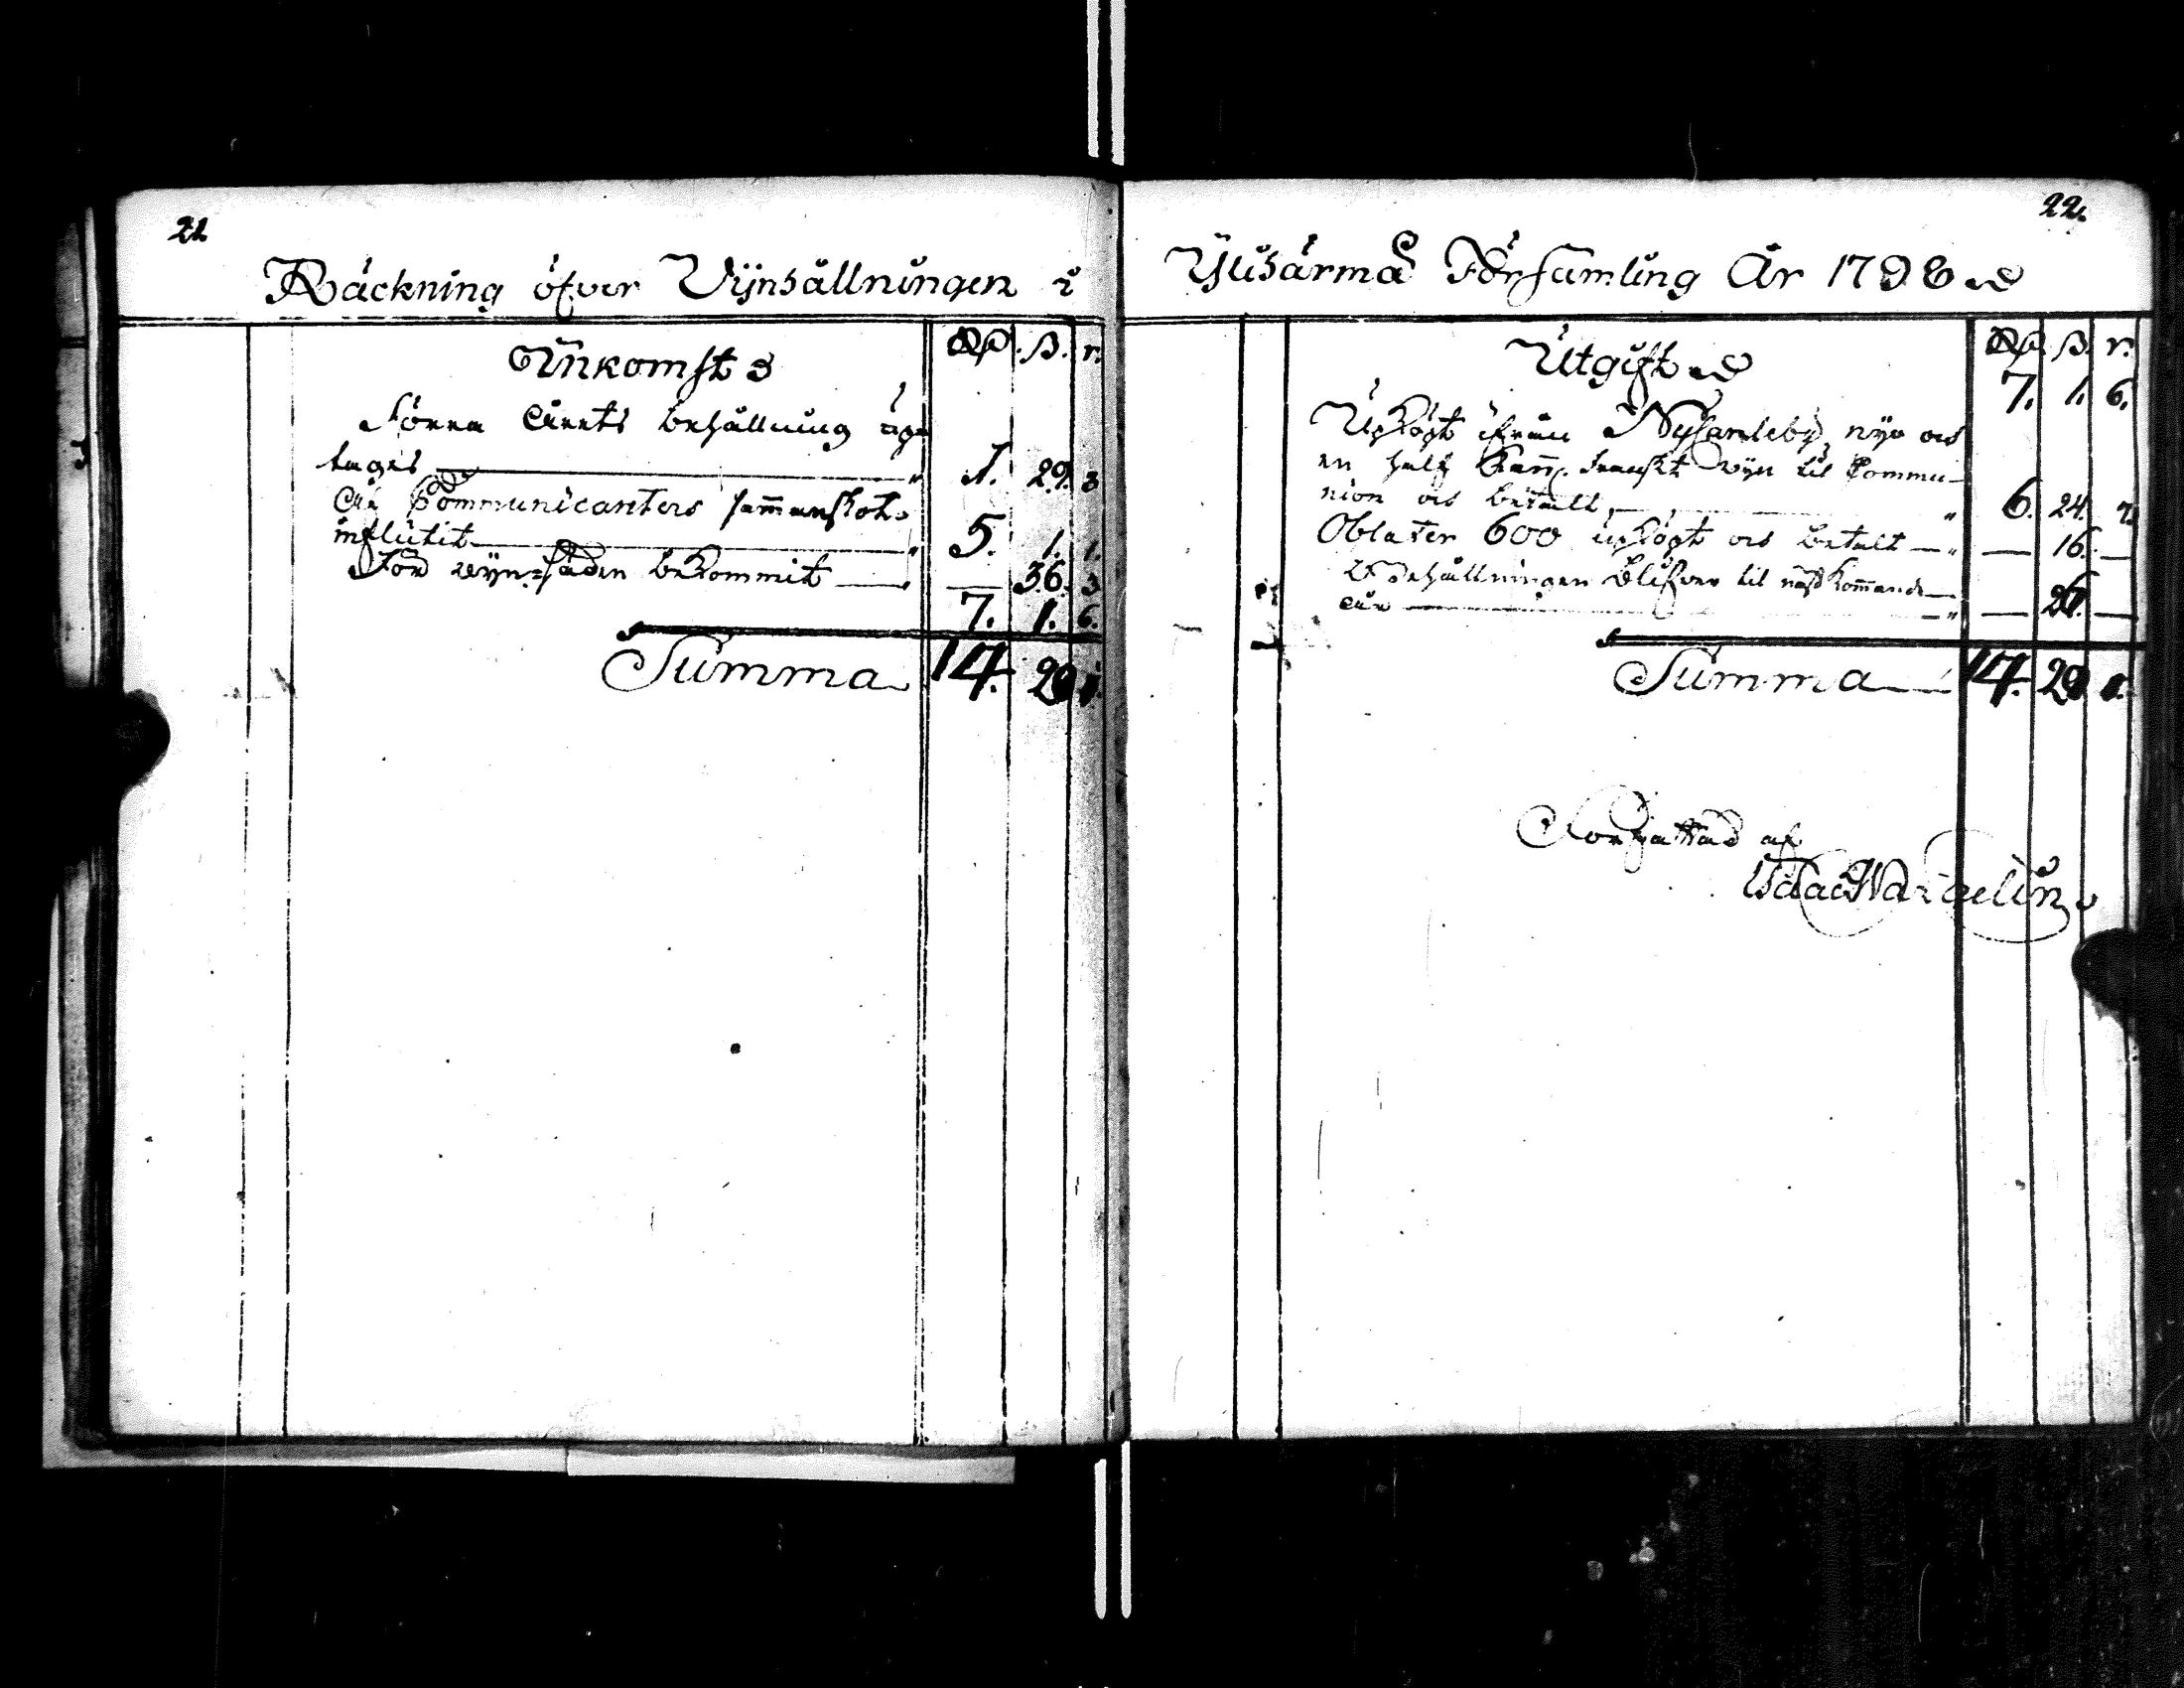 21
Räckning öfver Vijnhållningen i
Inkomst
Rd. ß. r.
Förra Årets behållning up=
tages 1. 29. 3
Af Communicanters sammanskott
influtit 5. 1. 1.
För vijn-säden bekommit — 36. 3
7. 1. 6.
Summa 14. 20
22.
Ylihärmä Församling År 1798
Utgift
Rd. ß. r.
7. 1. 6.
Upköpt ifrån Nycarleby nyo och
en half Kann. Franskt vijn til Commu-
nion och betalt 6. 24.
Oblater 600 upköpt och betalt — 16. —
Behållningen blifver til nästkommande
år —
Summa 14. 20
Författad af
Isaac Wargelin